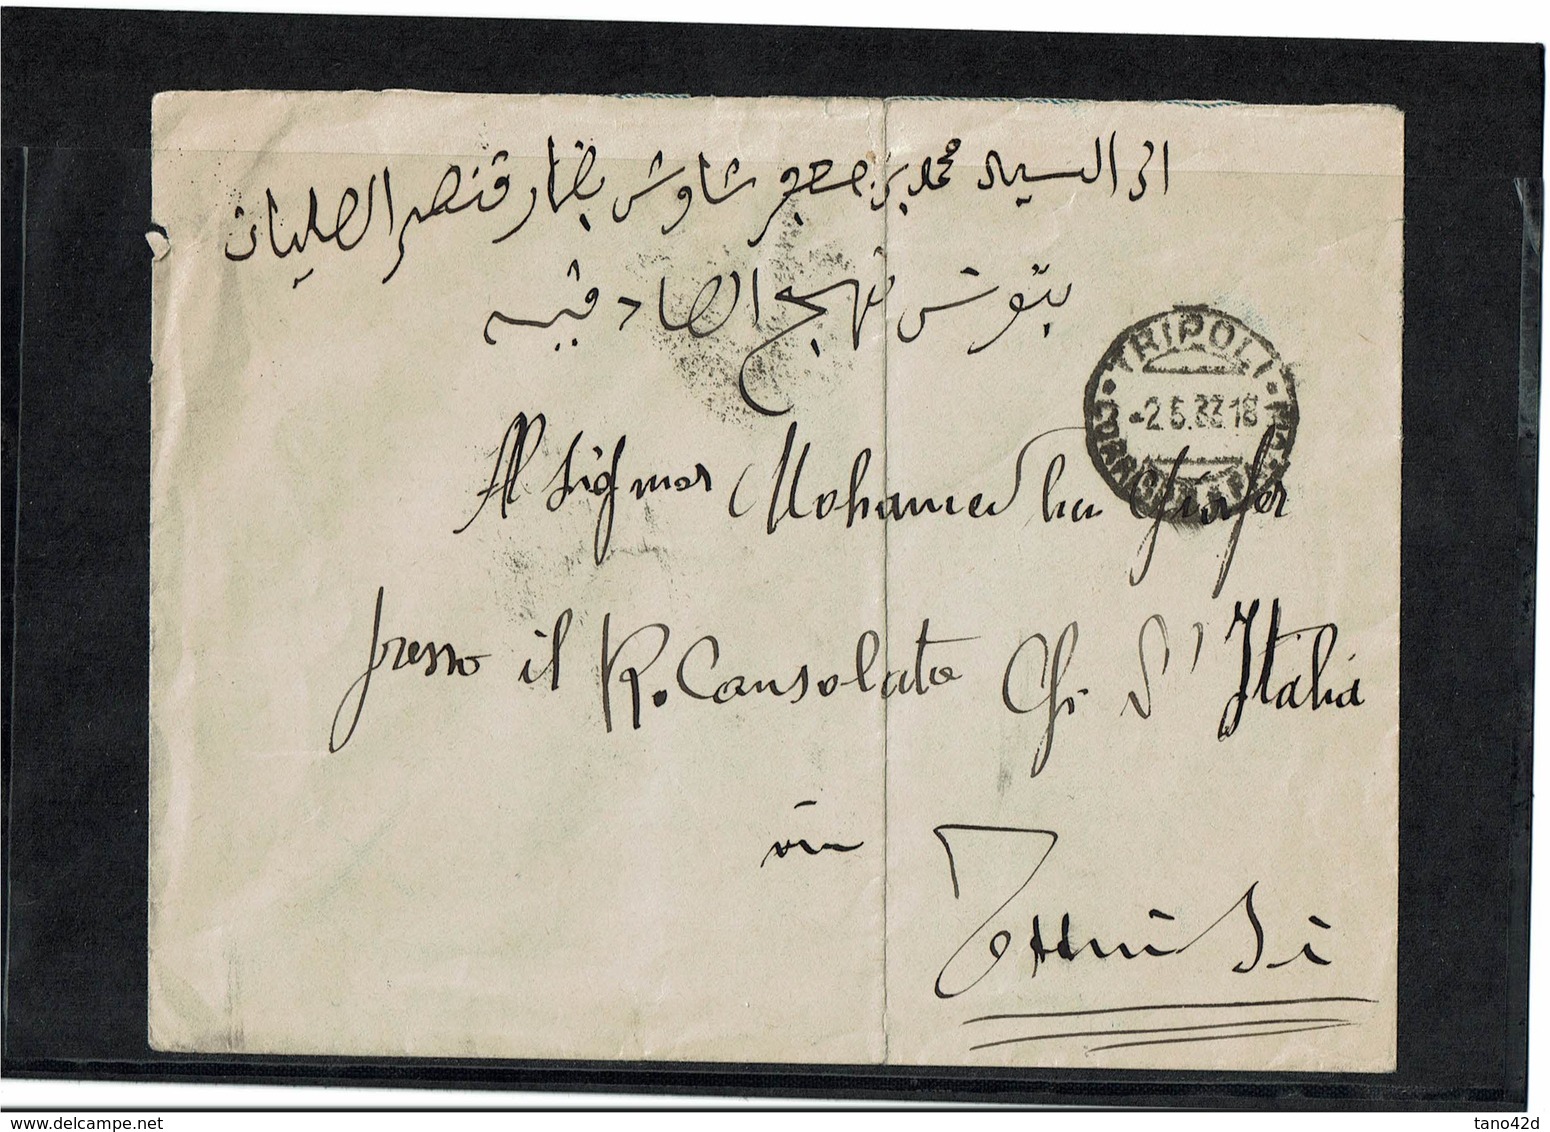 الى السيد محمد بن جعفر شاوش بفار قنصر الطليان
بتونس نهج الصادقيه
TRIPOLI
-2.5.33 18
CORRISP
Al Signor Mohamed ben Giafer
presso il R. Consolato Gle D'Italia
in
Tunisi
delcampe.net
tano42d